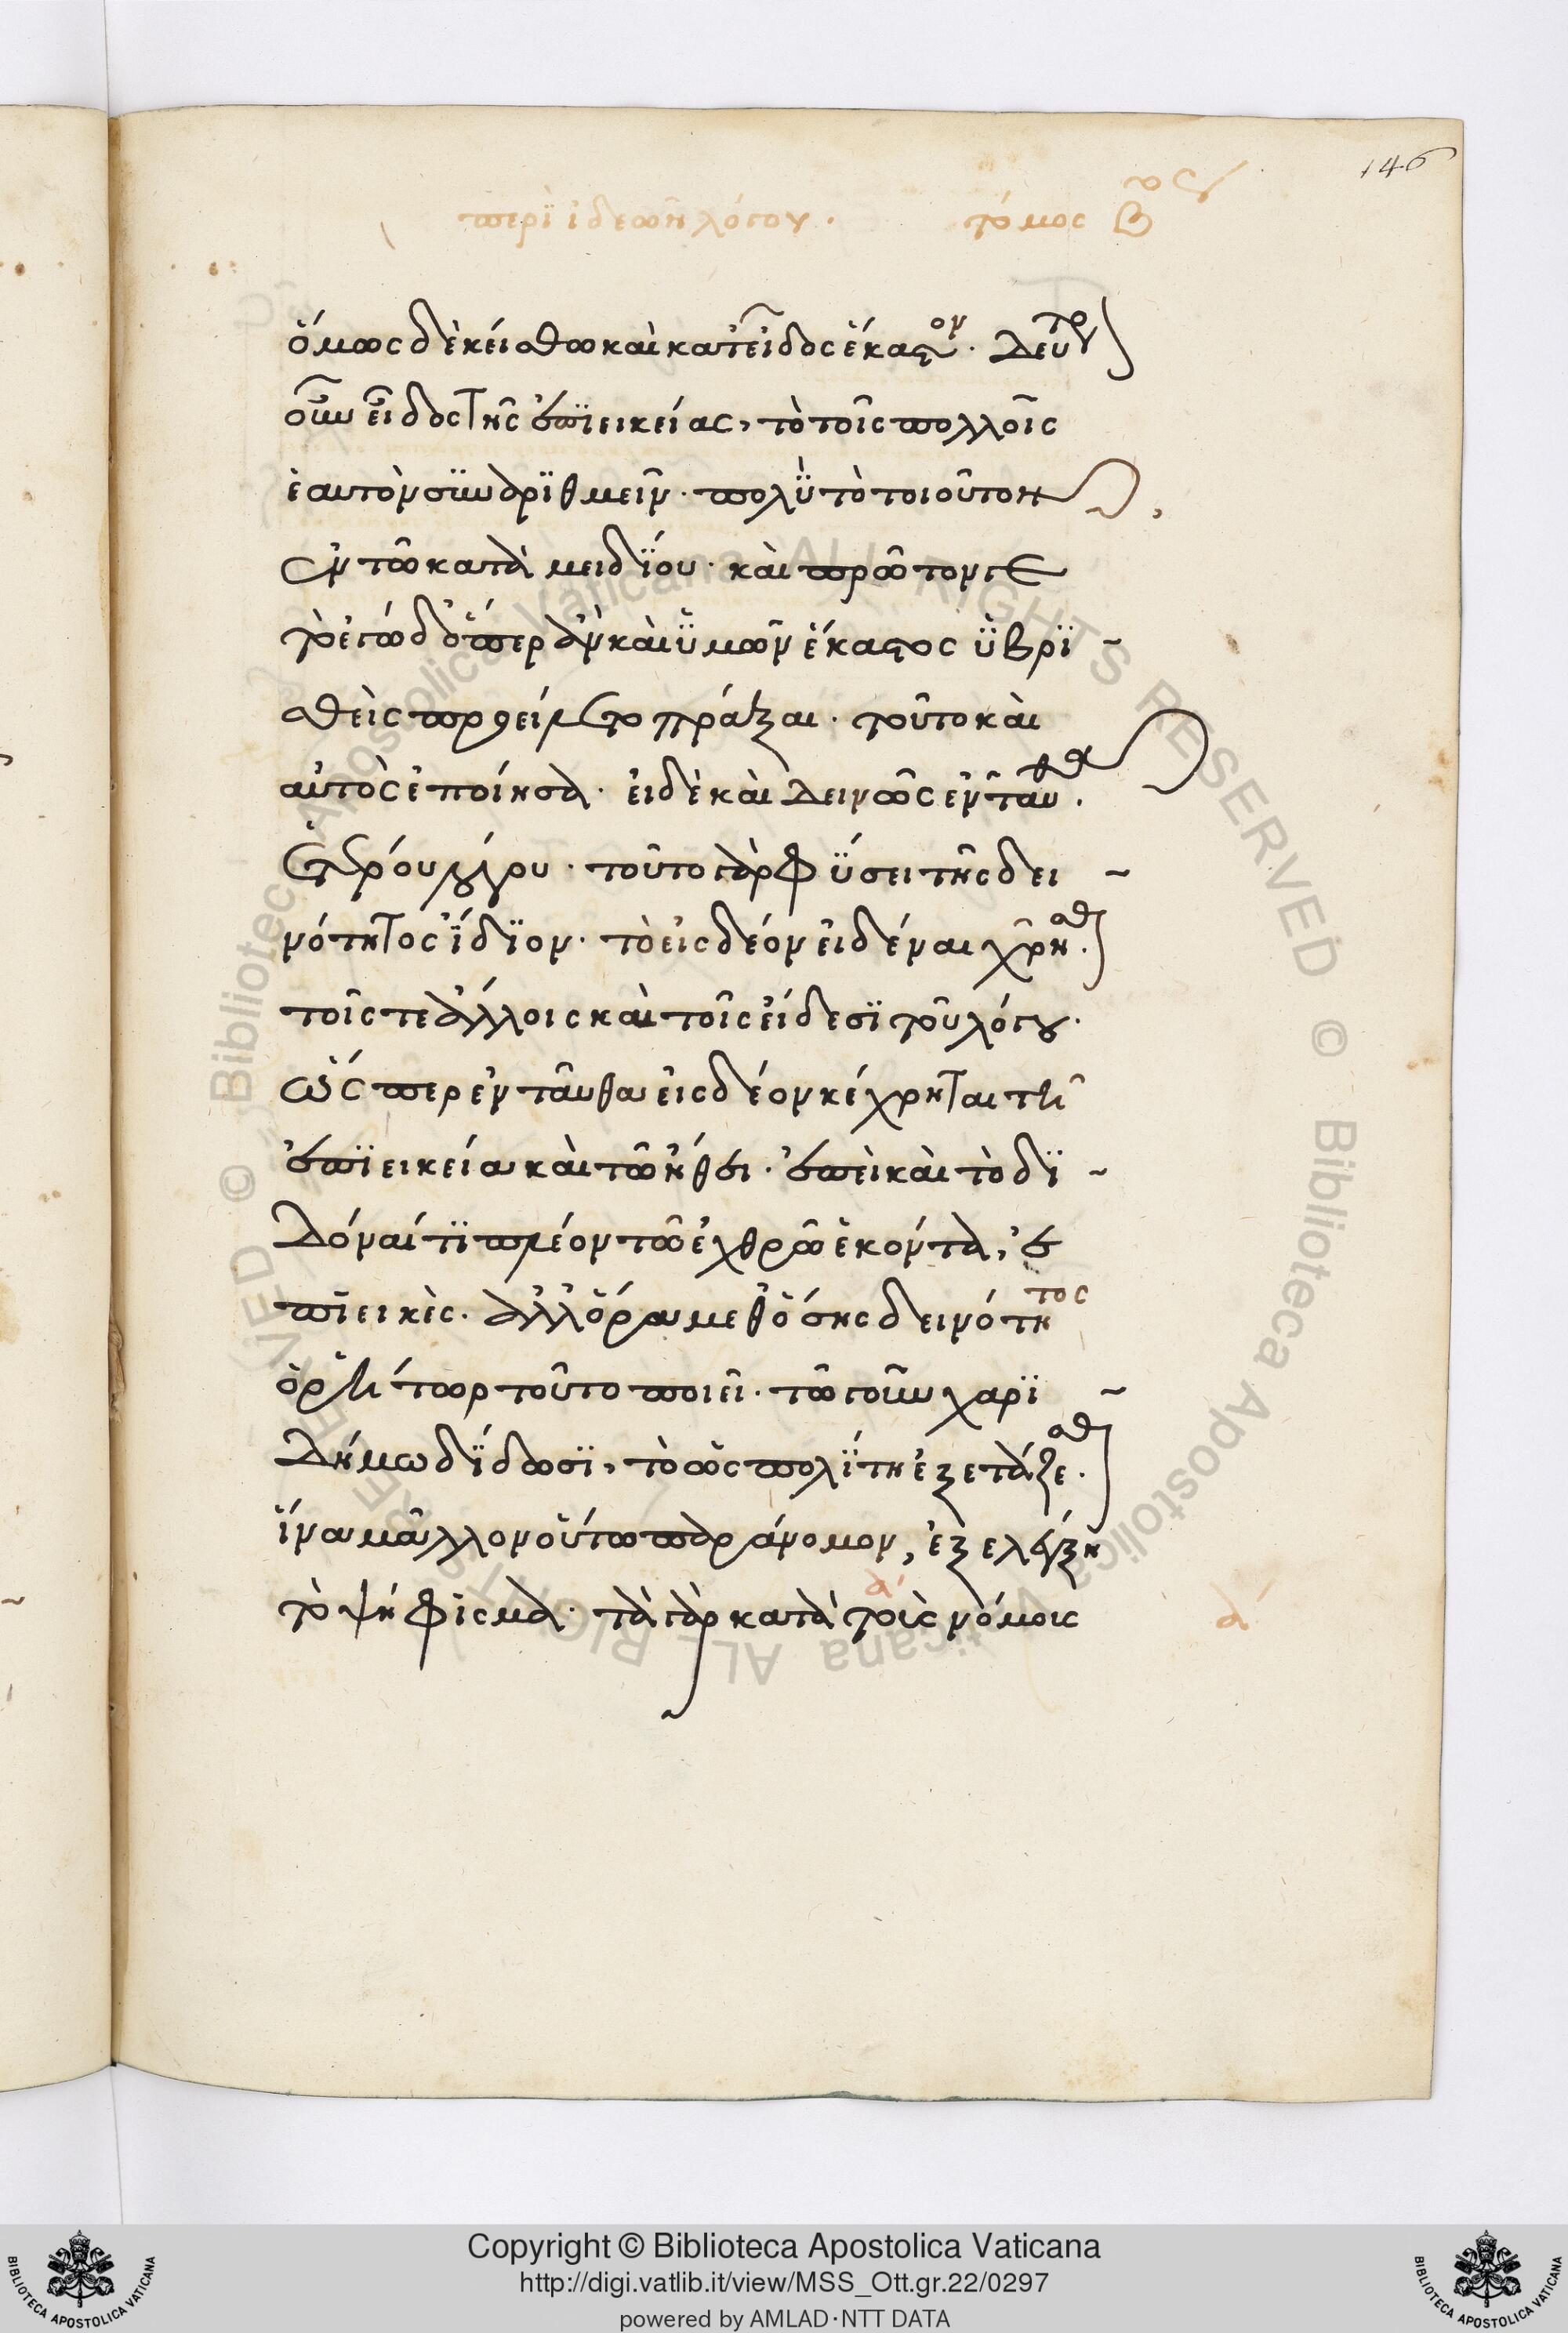 146
περὶ ἰδεῶν λόγου. τόμος β̅ος
ὅμως δὲ κείσθω καὶ κατ' εἶδος ἕκαστον. Δεύτερον
οὖν εἶδος τῆς ἐπιεικείας, τὸ τοῖς πολλοῖς
ἑαυτὸν συναριθμεῖν. πολὺ τὸ τοιοῦτον
ἐν τῷ κατὰ μειδίου. καὶ πρῶτόν γε
τὸ ἐγὼ δ' ὅπερ ἂν καὶ ὑμῶν ἕκαστος ὑβρι
σθεὶς προείλετο πρᾶξαι. τοῦτο καὶ
αὐτὸς ἐποίησα. εἰ δὲ καὶ δεινῶς ἐνταῦθα.
ἑτέρου λόγου. τοῦτο γὰρ φύσει τῆς δει
νότητος ἴδιον. τὸ εἰς δέον εἰδέναι χρῆσθαι.
τοῖς τε ἄλλοις καὶ τοῖς εἴδεσι τοῦ λόγου.
ὥσπερ ἐνταῦθα εἰς δέον κέχρηται τῇ
ἐπιεικείᾳ καὶ τῷ ἤθει. ἐπεὶ καὶ τὸ δι
δόναί τι πλέον τῷ ἐχθρῷ ἑκόντα, ἐ
πιεικὲς. ἀλλ' ὅρα μεθ' ὅσης δεινότητος
ὁ ῥήτωρ τοῦτο ποιεῖ. τῷ γοῦν χαρι
δήμῳ δίδωσι, τὸ ὡς πολίτῃ ἐξετάζεσθαι.
ἵνα μᾶλλον οὕτω παράνομον, ἐξελέγξῃ
τὸ ψήφισμα. τὰ γὰρ κατὰ τοὺς νόμους
α΄
α΄
Copyright © Biblioteca Apostolica Vaticana
http://digi.vatlib.it/view/MSS_Ott.gr.22/0297
powered by AMLAD·NTT DATA
BIBLIOTECA APOSTOLICA VATICANA
BIBLIOTECA APOSTOLICA VATICANA
© Biblioteca Apostolica Vaticana ALL RIGHTS RESERVED © Biblioteca Apostolica Vaticana ALL RIGHTS RESERVED